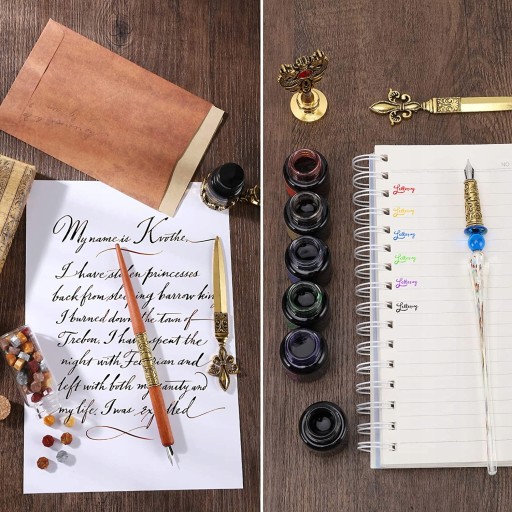 My name is Kvothe,
I have stolen princesses
back from sleeping barrow kin
I burned down the town of
Trebon. I have spent the
night with Felurian and
left with both my sanity and
my life. I was expelled
Lettering
Lettering
Lettering
Lettering
Lettering
Lettering